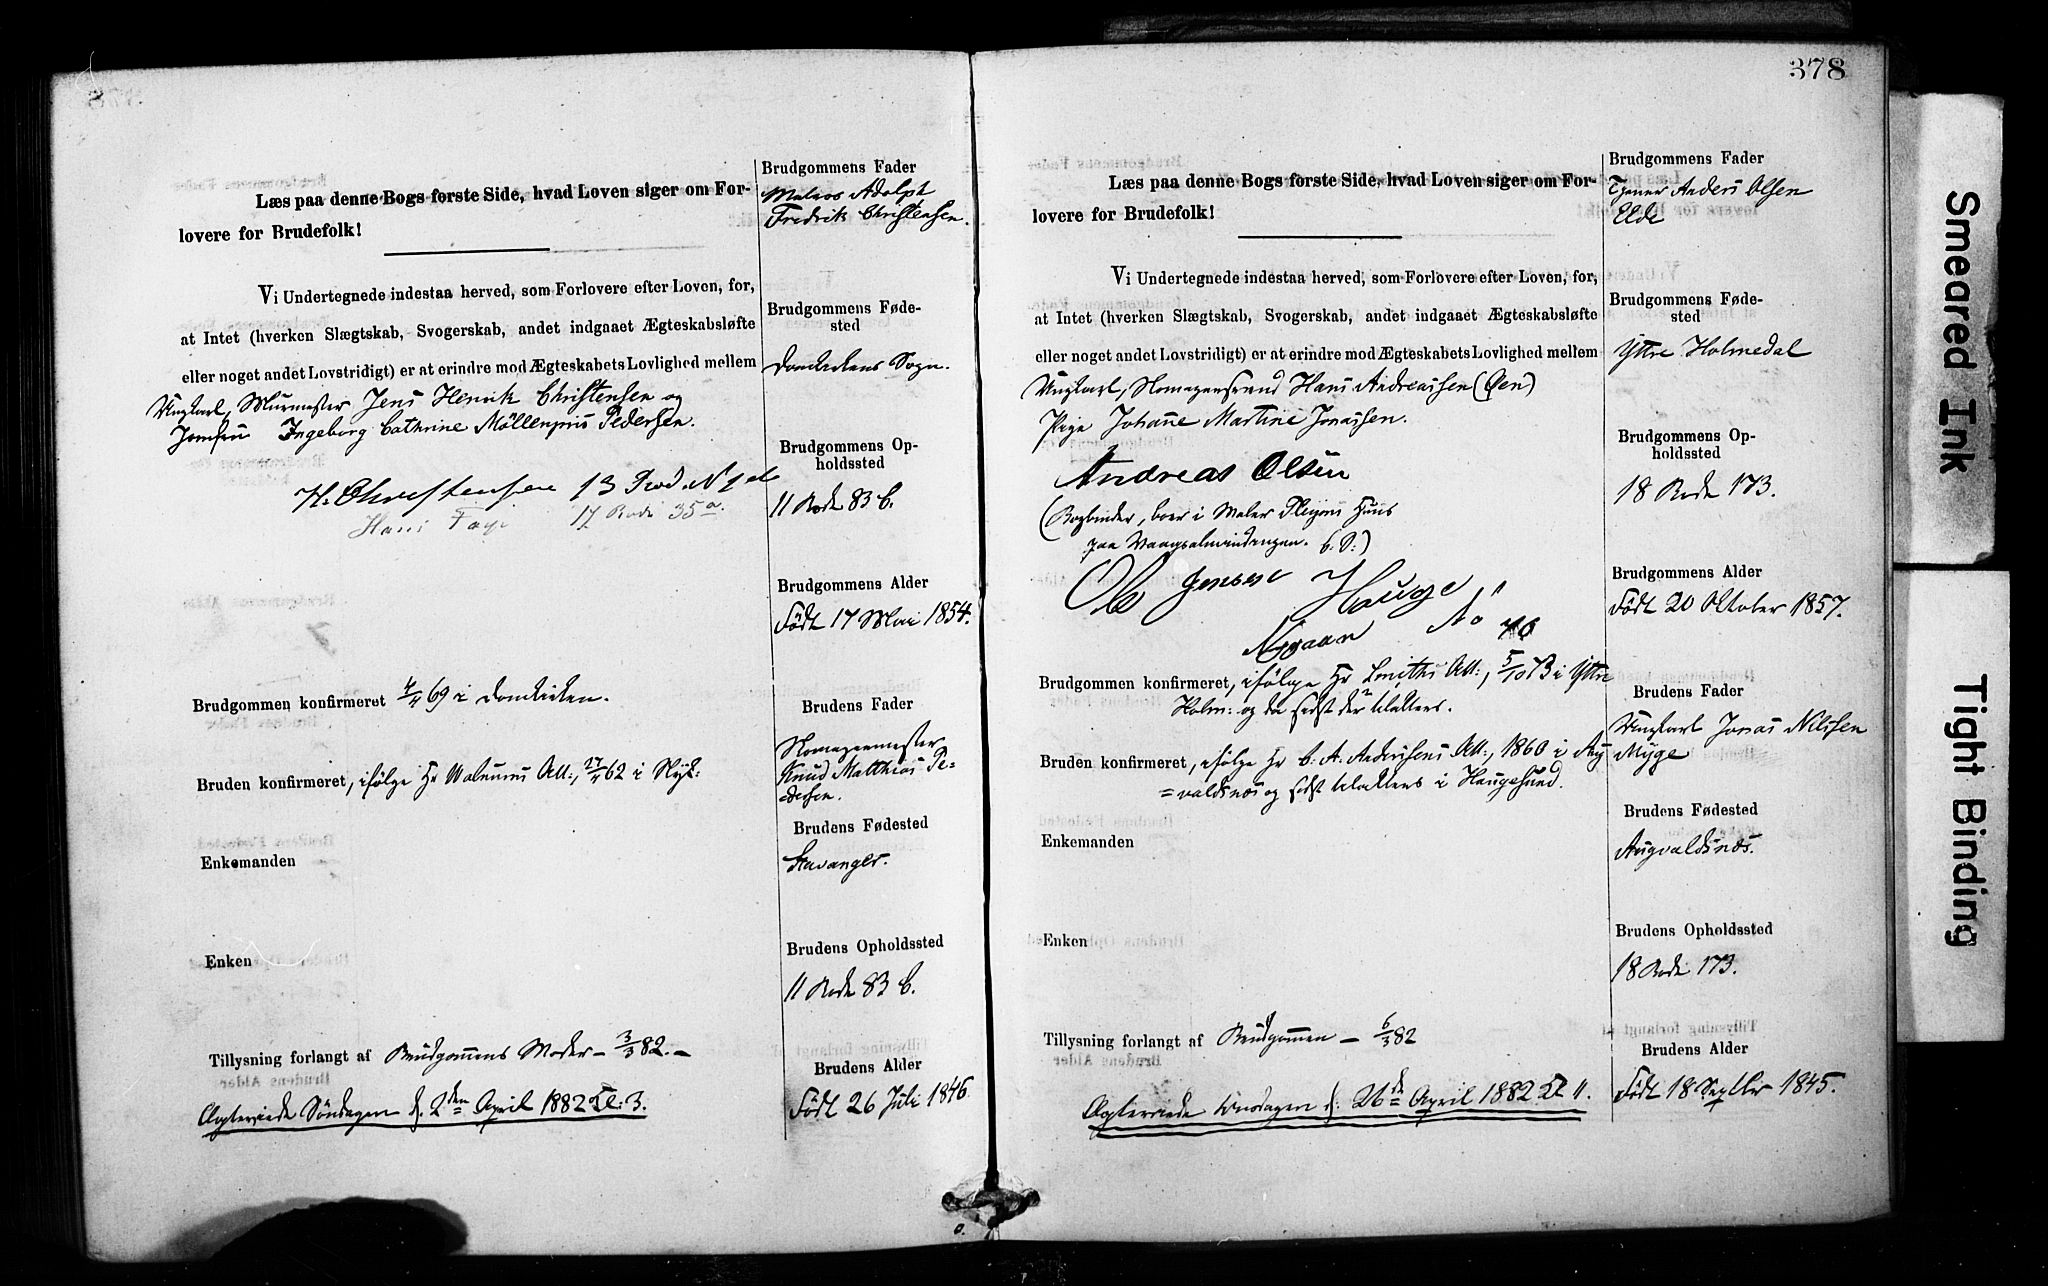 Læs paa denne Bogs første Side, hvad Loven siger om For-
lovere for Brudefolk!
Vi Undertegnede indestaa herved, som Forlovere efter Loven, for,
at Intet (hverken Slægtskab, Svogerskab, andet indgaaet Ægteskabsløfte
eller noget andet Lovstridigt) er at erindre mod Ægteskabets Lovlighed mellem
Ungkarl, Murmester Jens Henrik Christensen og
Jomfru Ingeborg Cathrine Möllenpris Pedersen.
H. Christensen 13 Rod N 1
Hans 17 Rode 35 a.
Brudgommen konfirmeret 69 i Domkirken.
Bruden konfirmeret, ifølge Hr Att:, 62 i Nyk:
Enkemanden
Enken
Tillysning forlangt af Brudgommens Moder – 3/3 82. –
Ægteviede Söndagen d. 2den April 1882 Kl: 3.
Brudgommens Fader
Matros Adolph
Fredrik Christensen.
Brudgommens Føde-
sted
Domkirkens Sogn.
Brudgommens Op-
holdssted
11 Rode 83 b.
Brudgommens Alder
Födt 17 Mai 1854.
Brudens Fader
Knud Matthias Pe-
dersen.
Brudens Fødested
Stavanger.
Brudens Opholdssted
11 Rode 83 b.
Brudens Alder
Födt 26 Juli 1846
378
Læs paa denne Bogs første Side, hvad Loven siger om For-
lovere for Brudefolk!
Vi Undertegnede indestaa herved, som Forlovere efter Loven, for,
at Intet (hverken Slægtskab, Svogerskab, andet indgaaet Ægteskabsløfte
eller noget andet Lovstridigt) er at erindre mod Ægteskabets Lovlighed mellem
Ungkarl, Hans Andreassen (Öen)
Pige Johanne Martine Jonassen.
Andreas Olsen
(Bogbinder, boer i Maler Huus
paa Vaagsalmindingen.
Ole Jensen Hauge
Nygaard No
Brudgommen konfirmeret, ifølge Hr Att:, 5/10 73 i Yttre
Holm: og da sidst der til Alters.
Bruden konfirmeret, ifølge Hr C. A. Andersens Att:, 1860 i Aug
=valdsnæs og sidst til Alters i Haugesund.
Enkemanden
Enken
Tillysning forlangt af Brudgommen – 6/3 82
Ægteviede Onsdagen d. 26de April 1882 Kl 11.
Brudgommens Fader
Tjener Anders Olsen
Elde
Brudgommens Føde-
sted
Yttre Holmedal
Brudgommens Op-
holdssted
18 Rode 173.
Brudgommens Alder
Födt 20 Oktober 1857.
Brudens Fader
Ungkarl Jonas Nilssen
Myge
Brudens Fødested
Augvaldsnæs.
Brudens Opholdssted
18 Rode 173.
Brudens Alder
Födt 18 Septbr 1845.
Smeared Ink
Tight Binding